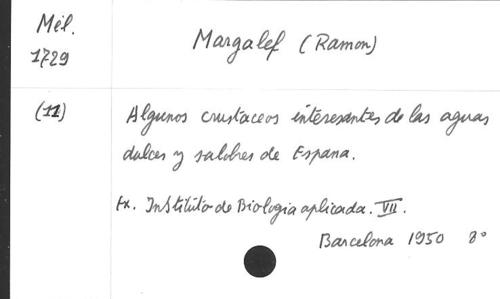 Mél.
1729
Margalef (Ramon)
(11)
Algunos crustaceos interesantes de las aguas
dulces y salobres de Espana.
Ex. Instituto de Biologia aplicada. VII.
Barcelona 1950 8°